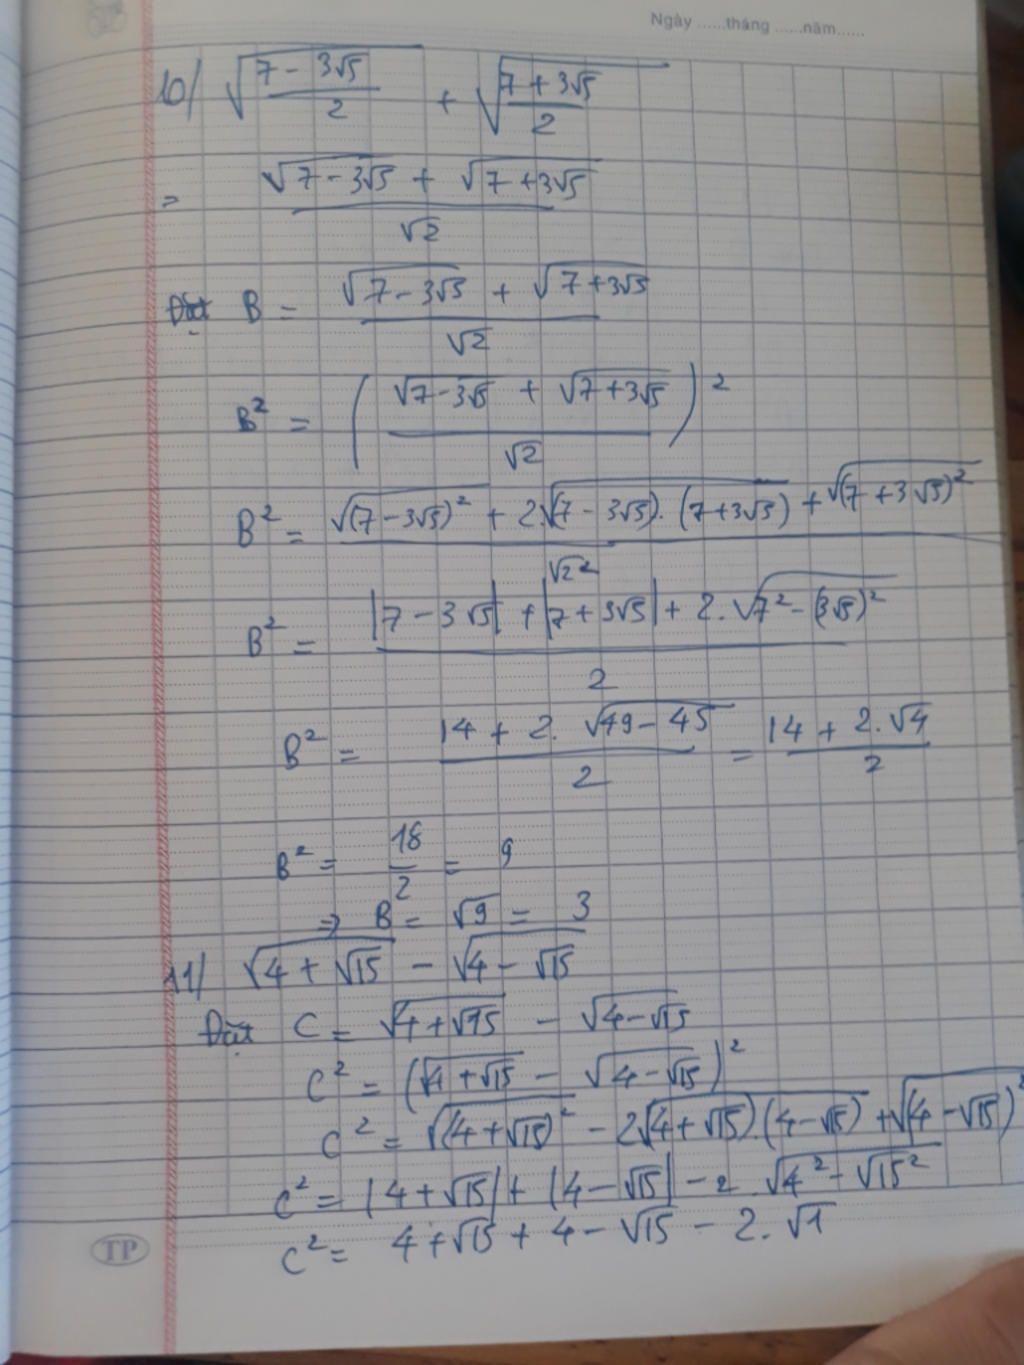 Ngày ......tháng ......năm......
10/ √((7 - 3√5)/2) + √((7 + 3√5)/2)
= (√(7 - 3√5) + √(7 + 3√5))/√2
Đặt B = (√(7 - 3√5) + √(7 + 3√5))/√2
B² = ((√(7 - 3√5) + √(7 + 3√5))/√2)²
B² = (√(7 - 3√5)² + 2.√((7 - 3√5).(7 + 3√5)) + √(7 + 3√5)²)/√2²
B² = (|7 - 3√5| + |7 + 3√5| + 2.√(7² - (3√5)²))/2
B² = (14 + 2.√(49 - 45))/2 = (14 + 2.√4)/2
B² = 18/2 = 9
⇒ B = √9 = 3
11/ √(4 + √15) - √(4 - √15)
Đặt C = √(4 + √15) - √(4 - √15)
C² = (√(4 + √15) - √(4 - √15))²
C² = √(4 + √15)² - 2√((4 + √15).(4 - √15)) + √(4 - √15)²
C² = |4 + √15| + |4 - √15| - 2.√(4² - √15²)
C² = 4 + √15 + 4 - √15 - 2.√1
TP